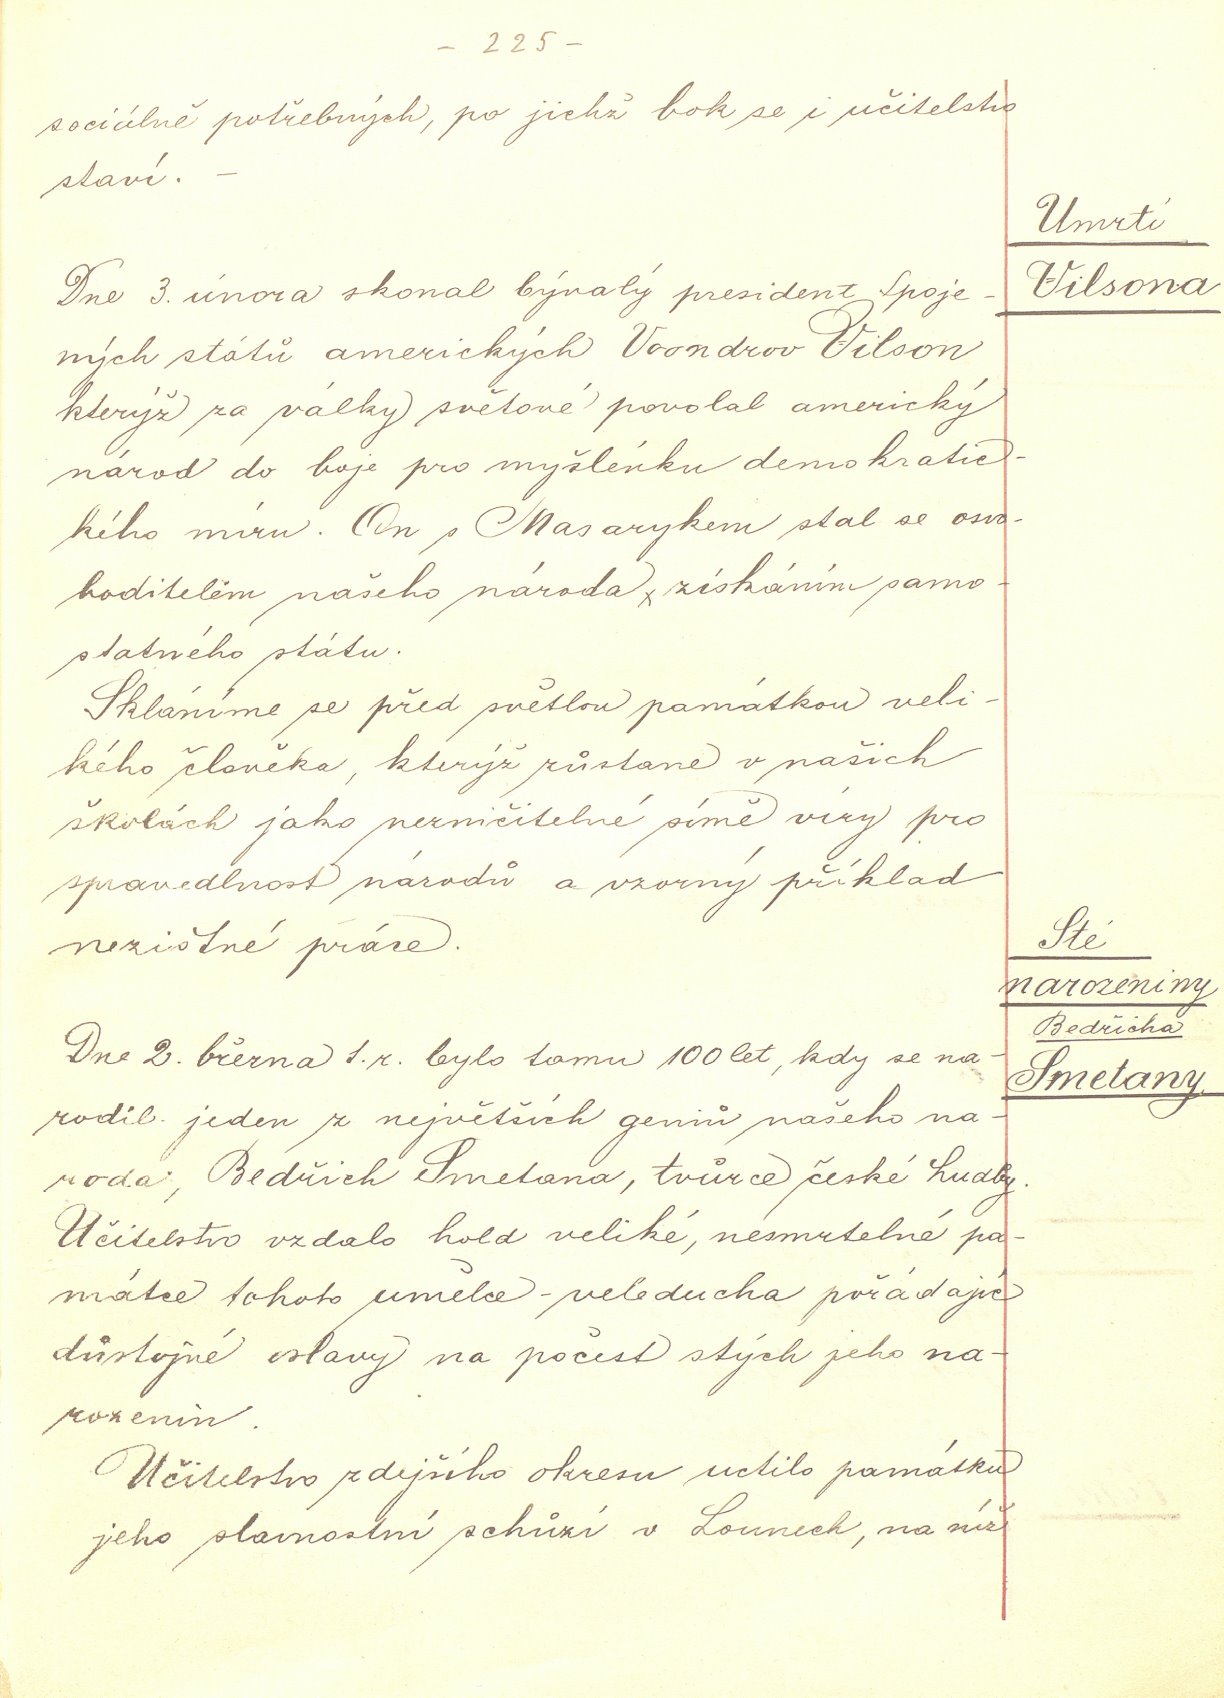 - 225 -
sociálně potřebných, po jichž bok se i učitelstvo
staví. -
Umrtí
Vilsona
Dne 3. února skonal bývalý president Spoje-
ných států amerických Voondrov Vilson
kterýž za války světové povolal americký
národ do boje pro myšlénku demokratic-
kého míru. On s Masarykem stal se osvo-
boditelem našeho národa x získáním samo-
statného státu.
Skláníme se před světlou památkou veli-
kého člověka, kterýž zůstane v našich
školách jako nezničitelné símě víry pro
spravedlnost národů a vzorný příklad
nezištné práce.
Sté
narozeniny
Bedřicha
Smetany
Dne 2. března t. r. bylo tomu 100 let, kdy se na-
rodil jeden z největších geniů našeho ná-
roda, Bedřich Smetana, tvůrce české hudby.
Učitelstvo vzdalo hold veliké, nesmrtelné pa-
mátce tohoto umělce - veleducha pořádajíc
důstojné oslavy na počest stých jeho na-
rozenin.
Učitelstvo zdejšího okresu uctilo památku
jeho slavnostní schůzí v Lounech, na níž